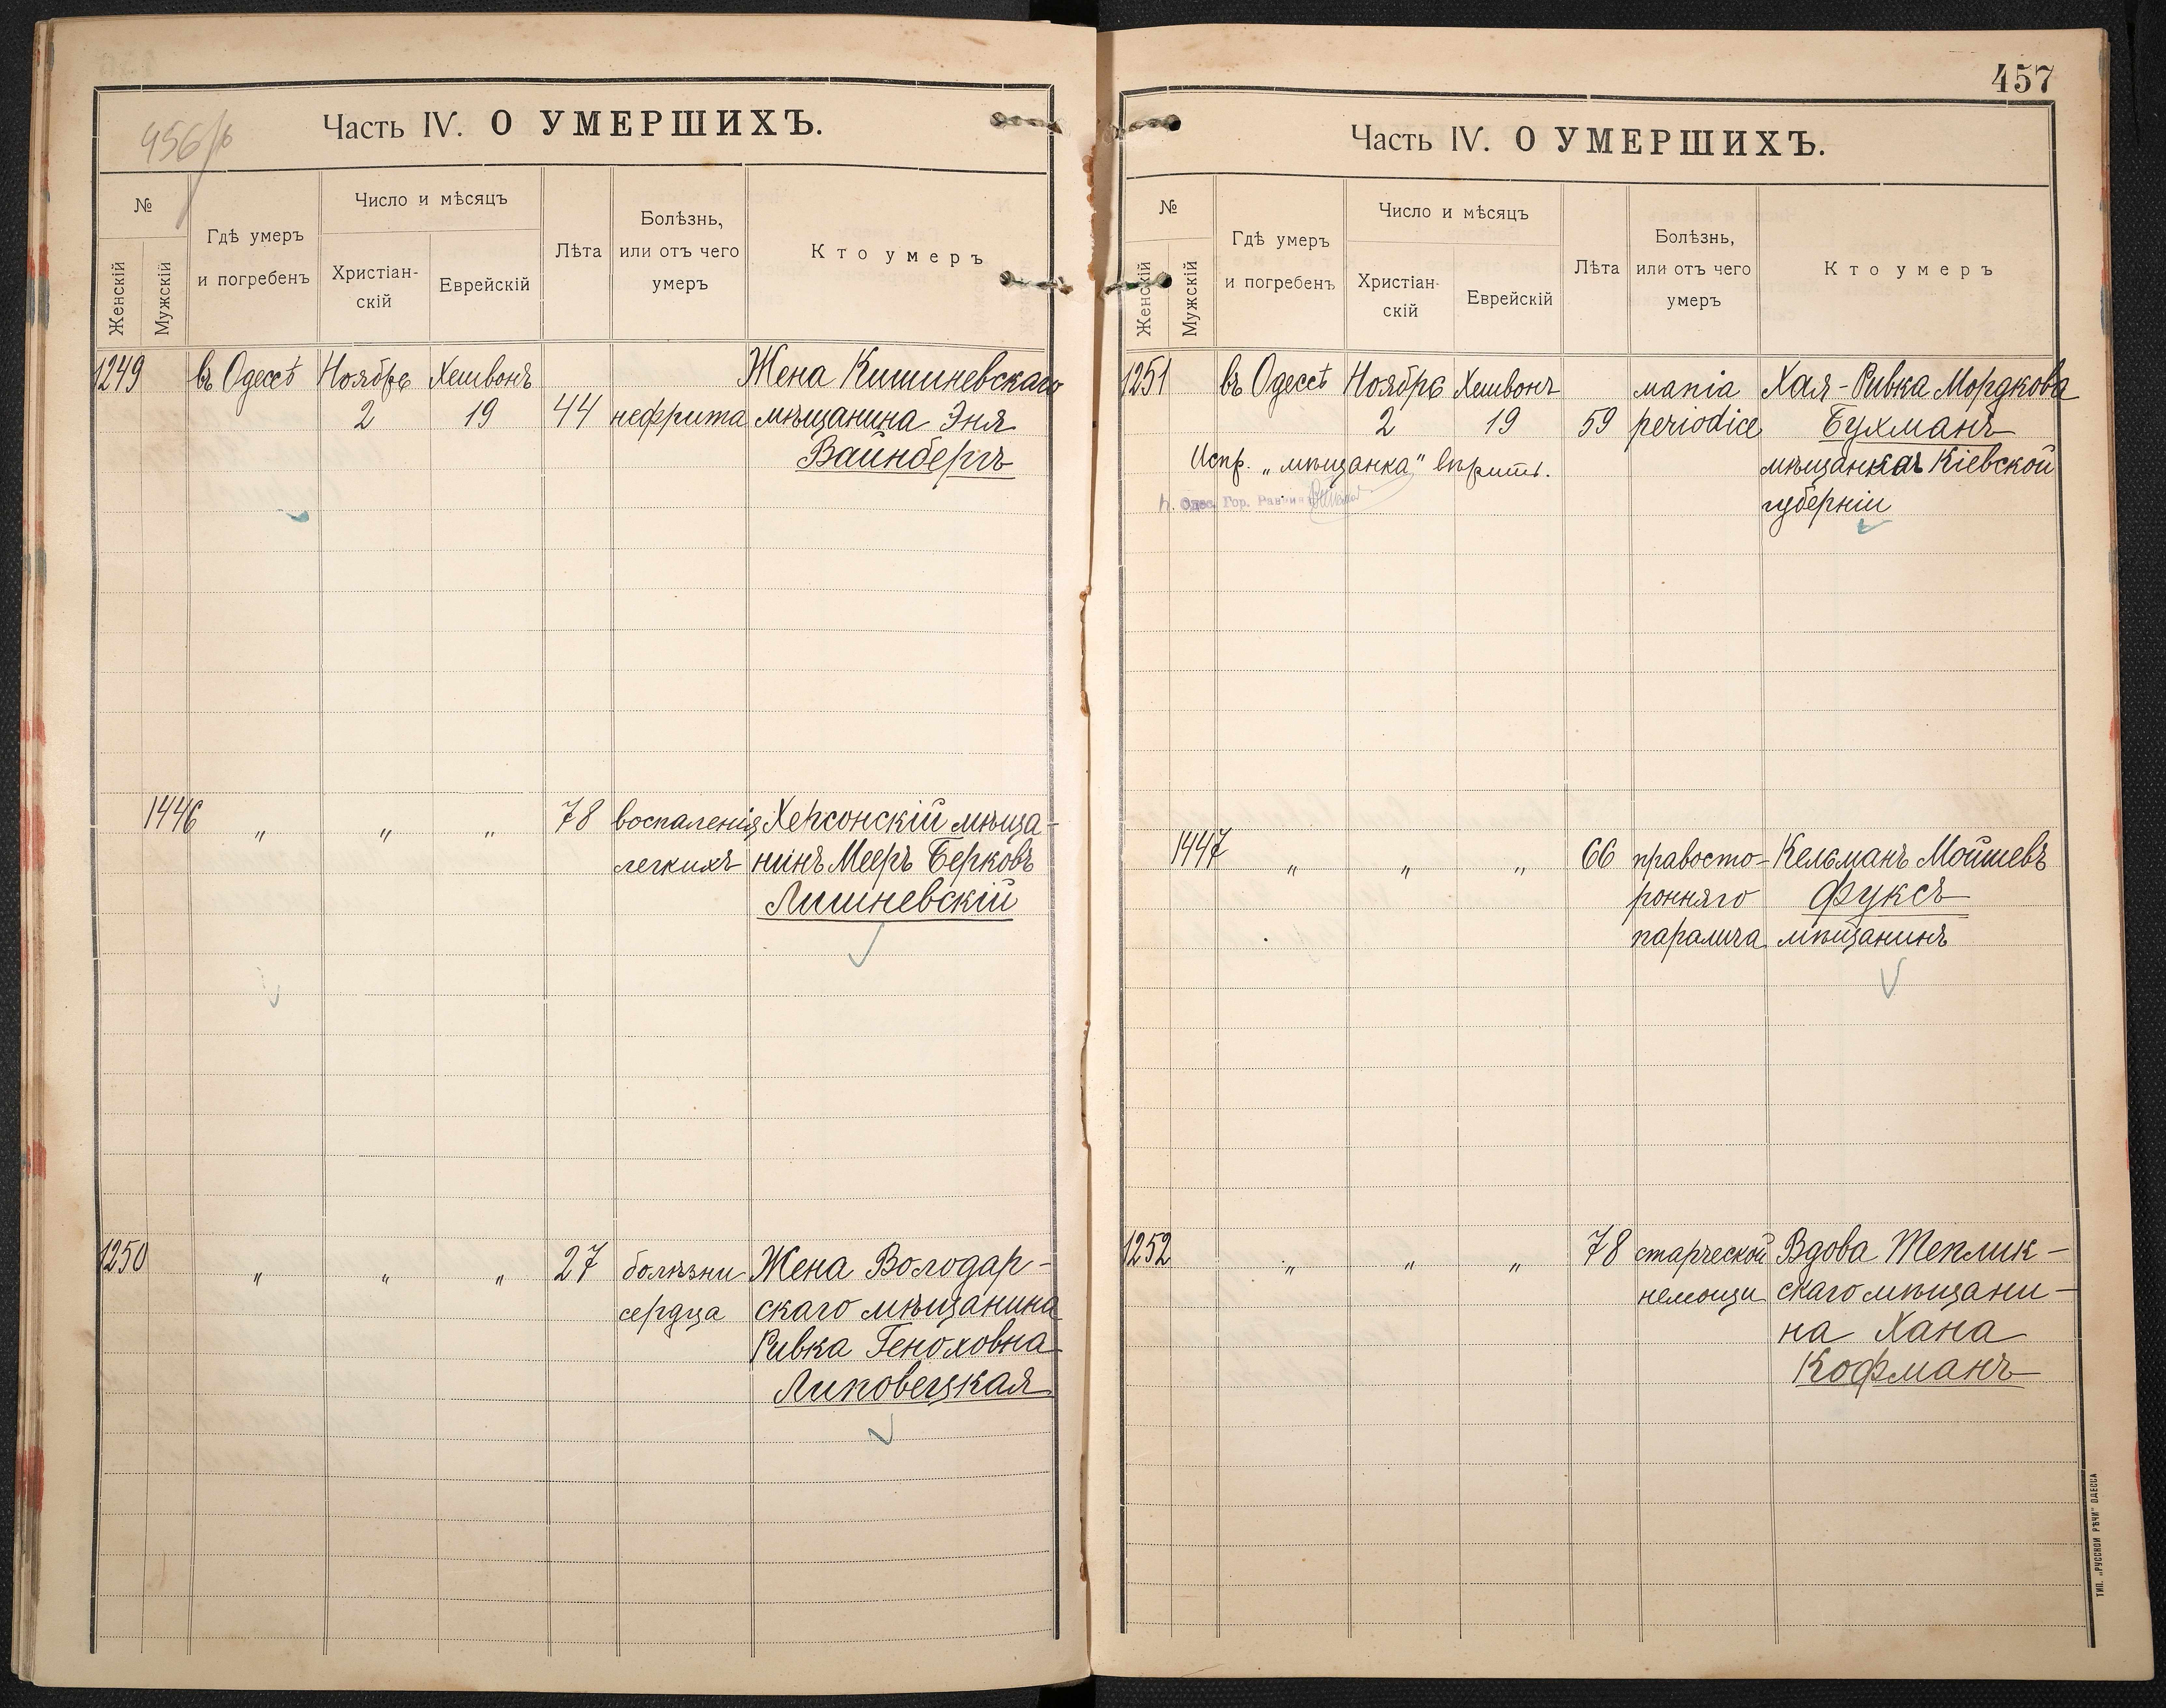 456 об
Часть IV. О УМЕРШИХЪ.
№
Женскій
Мужскій
Гдѣ умеръ
и погребенъ
Число и мѣсяцъ
Христіан-
скій
Еврейскій
Лѣта
Болѣзнь,
или отъ чего
умеръ
Кто умеръ
1249 въ Одессѣ Ноябрь Хешвонъ Жена Кишиневскаго
2 19 44 нефрита мѣщанина Эня
Вайнбергъ
1446 „ „ „ 78 воспаленія Херсонскій мѣща-
легкихъ нинъ Мееръ Берковъ
Лишневскій
1250 „ „ „ 27 болѣзни Жена Володар-
сердца скаго мѣщанина
Ривка Геноховна
Липовецкая
457
Часть IV. О УМЕРШИХЪ.
№
Женскій
Мужскій
Гдѣ умеръ
и погребенъ
Число и мѣсяцъ
Христіан-
скій
Еврейскій
Лѣта
Болѣзнь,
или отъ чего
умеръ
Кто умеръ
1251 въ Одессѣ Ноябрь Хешвонъ mania Хая-Ривка Мордкова
2 19 59 periodice Бухманъ
Испр. „мѣщанка" вѣрить. мѣщанка Кіевской
Одес. Гор. Раввинъ губерніи
1447 „ „ „ 66 правосто- Кельманъ Мойшевъ
ронняго Фуксъ
паралича мѣщанинъ
1252 „ „ „ 78 старческой Вдова Теплик-
немощи скаго мѣщани-
на Хана
Кофманъ
ТИП. „РУССКОЙ РѢЧИ" ОДЕССА